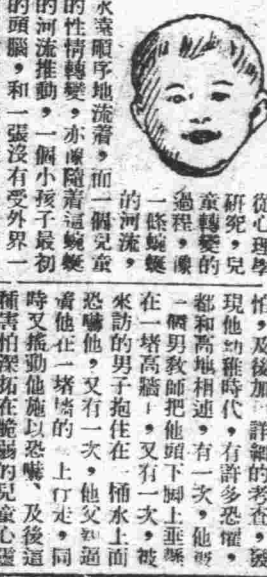 從心理學
研究，兒
童轉變的
過程，像
一條蜿蜒
的河流，
永遠順序地流着，而一個兒童
的性情轉變，亦像隨着這蜿蜒
的河流推動，一個小孩子最初
的頭腦，和一張沒有受外界一
怕，及後加 詳細的考查，發
現他幼稚時代，有許多恐懼，
都和高地相連，有一次，他被
一個男教師把他頭下脚上垂懸
在一堵高牆 ，又有一次，被
來訪的男子抱住在一桶水上面
恐嚇他，又有一次，他父 過
他在一堵牆的 上行走，同
時又搖動他施以恐嚇、及後這
種害怕深拓在脆弱的兒童心靈